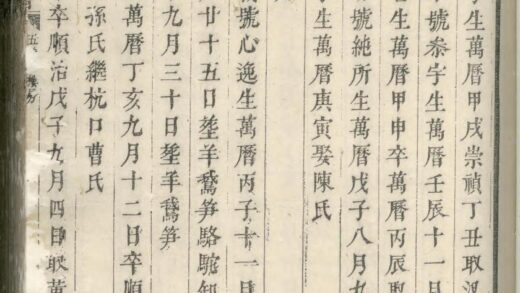 生萬曆甲戌崇禎丁丑取
號泰宇生萬曆壬辰十一月
生萬曆甲申卒萬曆丙辰取
號純所生萬曆戊子八月九
生萬曆庚寅娶陳氏
號心逸生萬曆丙子十一月
廿十五日塟羊鵞笋駱駝
九月三十日塟羊鵞笋
萬曆丁亥九月十二日卒順
孫氏繼杭口曹氏
卒順治戊子九月四日取黄
五